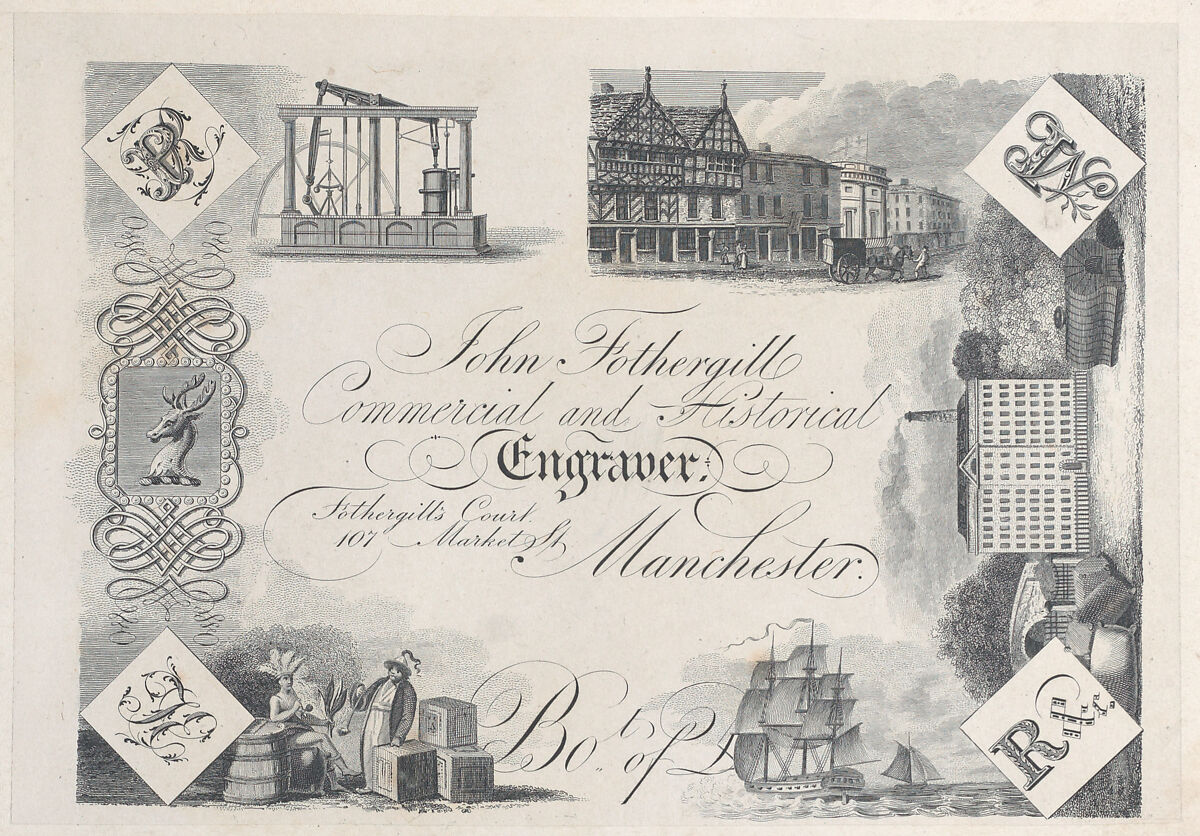 John Fothergill
Commercial and Historical
Engraver.
Fothergill's Court.
107 Market St
Manchester.
Bo.t of